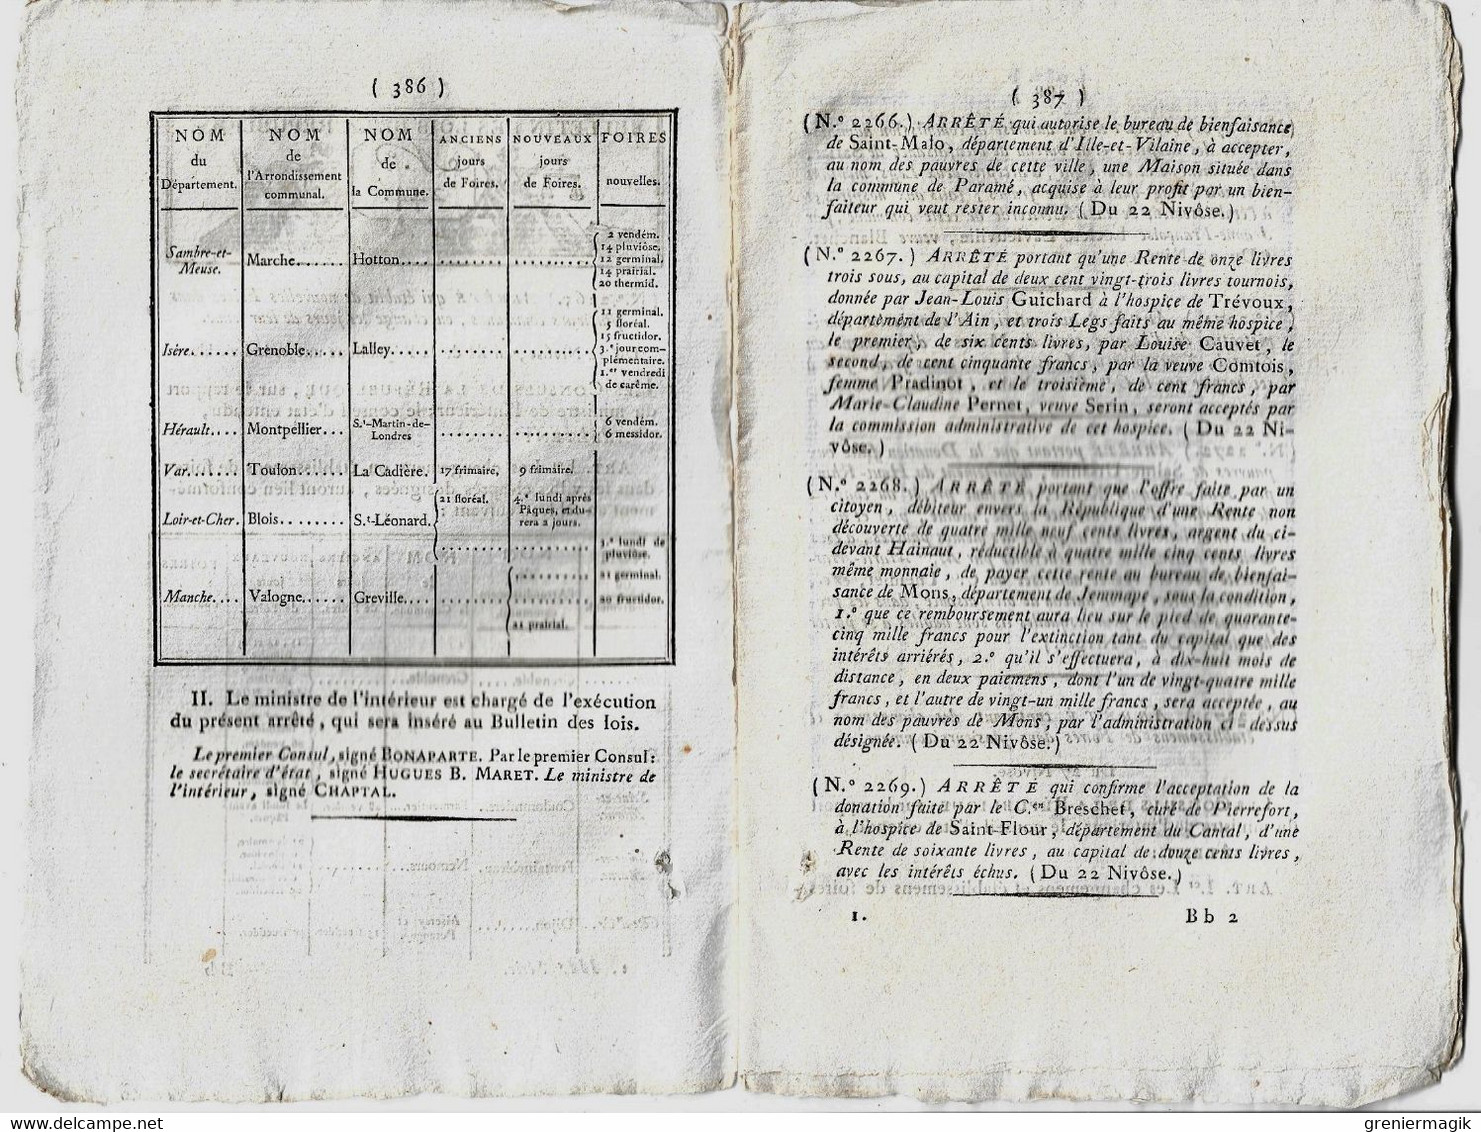 ( 386 )
NOM du Département. | NOM de l'Arrondissement communal. | NOM de la Commune. | ANCIENS jours de Foires. | NOUVEAUX jours de Foires. | FOIRES nouvelles.
Sambre-et-Meuse. | Marche....... | Hotton..... | .......... | .......... | 2 vendém. 14 pluviôse. 12 germinal. 14 prairial. 20 thermid.
Isère...... | Grenoble..... | Lalley..... | .......... | .......... | 11 germinal. 5 floréal. 15 fructidor. 3.e jour complémentaire. 1.er vendredi de carême.
Hérault.... | Montpellier... | S.t-Martin-de-Londres | .......... | .......... | 6 vendém. 6 messidor.
Var....... | Toulon....... | La Cadière. | 17 frimaire. | 9 frimaire.
Loir-et-Cher. | Blois........ | S.t-Léonard. | 21 floréal. | 4.e lundi après Pâques, et durera 2 jours. | 3.e lundi de pluviôse.
Manche.... | Valogne...... | Greville.... | .......... | 21 prairial. | 21 germinal. 20 fructidor.
II. Le ministre de l'intérieur est chargé de l'exécution
du présent arrêté, qui sera inséré au Bulletin des lois.
Le premier Consul, signé BONAPARTE. Par le premier Consul:
le secrétaire d'état, signé HUGUES B. MARET. Le ministre de
l'intérieur, signé CHAPTAL.
( 387 )
(N.° 2266.) ARRÊTÉ qui autorise le bureau de bienfaisance
de Saint-Malo, département d'Ille-et-Vilaine, à accepter,
au nom des pauvres de cette ville, une Maison située dans
la commune de Paramé, acquise à leur profit par un bien-
faiteur qui veut rester inconnu. (Du 22 Nivôse.)
(N.° 2267.) ARRÊTÉ portant qu'une Rente de onze livres
trois sous, au capital de deux cent vingt-trois livres tournois,
donnée par Jean-Louis Guichard à l'hospice de Trévoux,
département de l'Ain, et trois Legs faits au même hospice,
le premier, de six cents livres, par Louise Cauvet, le
second, de cent cinquante francs, par la veuve Comtois,
femme Pradinot, et le troisième, de cent francs, par
Marie-Claudine Pernet, veuve Serin, seront acceptés par
la commission administrative de cet hospice. (Du 22 Ni-
vôse.)
(N.° 2268.) ARRÊTÉ portant que l'offre faite par un
citoyen, débiteur envers la République d'une Rente non
découverte de quatre mille neuf cents livres, argent du ci-
devant Hainaut, réductible à quatre mille cinq cents livres
même monnaie, de payer cette rente au bureau de bienfai-
sance de Mons, département de Jemmape, sous la condition,
1.° que ce remboursement aura lieu sur le pied de quarante-
cinq mille francs pour l'extinction tant du capital que des
intérêts arriérés, 2.° qu'il s'effectuera, à dix-huit mois de
distance, en deux paiemens, dont l'un de vingt-quatre mille
francs, et l'autre de vingt-un mille francs, sera acceptée, au
nom des pauvres de Mons, par l'administration ci-dessus
désignée. (Du 22 Nivôse.)
(N.° 2269.) ARRÊTÉ qui confirme l'acceptation de la
donation faite par le C.en Breschet, curé de Pierrefort,
à l'hospice de Saint-Flour, département du Cantal, d'une
Rente de soixante livres, au capital de douze cents livres,
avec les intérêts échus. (Du 22 Nivôse.)
1. Bb 2
www.delcampe.net
greniermagik